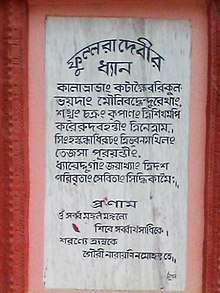 ফুল্লরা দেবীর
ধ্যান
কালাভ্রাভাং কটাক্ষৈররিকুল
ভয়দাং মৌলিবদ্ধেন্দুরেখাং,
শঙ্খং চক্রং কৃপাণং ত্রিশিখমপি
করৈরুদবহন্তীং ত্রিনেত্রাম্,
সিংহস্কন্ধাধিরূঢ়াং ত্রিভুবনমখিলং
তেজসা পূরয়ন্তীং,
ধ্যায়েদ্দুর্গাং জয়াখ্যাং ত্রিদশ
পরিবৃতাং সেবিতাং সিদ্ধিকামৈঃ,
প্রণাম
সর্ব্বমঙ্গলমঙ্গল্যে
শিবে সর্ব্বার্থসাধিকে,
শরণ্যে ত্র্যম্বকে
গৌরী নারায়নি নমোহস্তুতে,